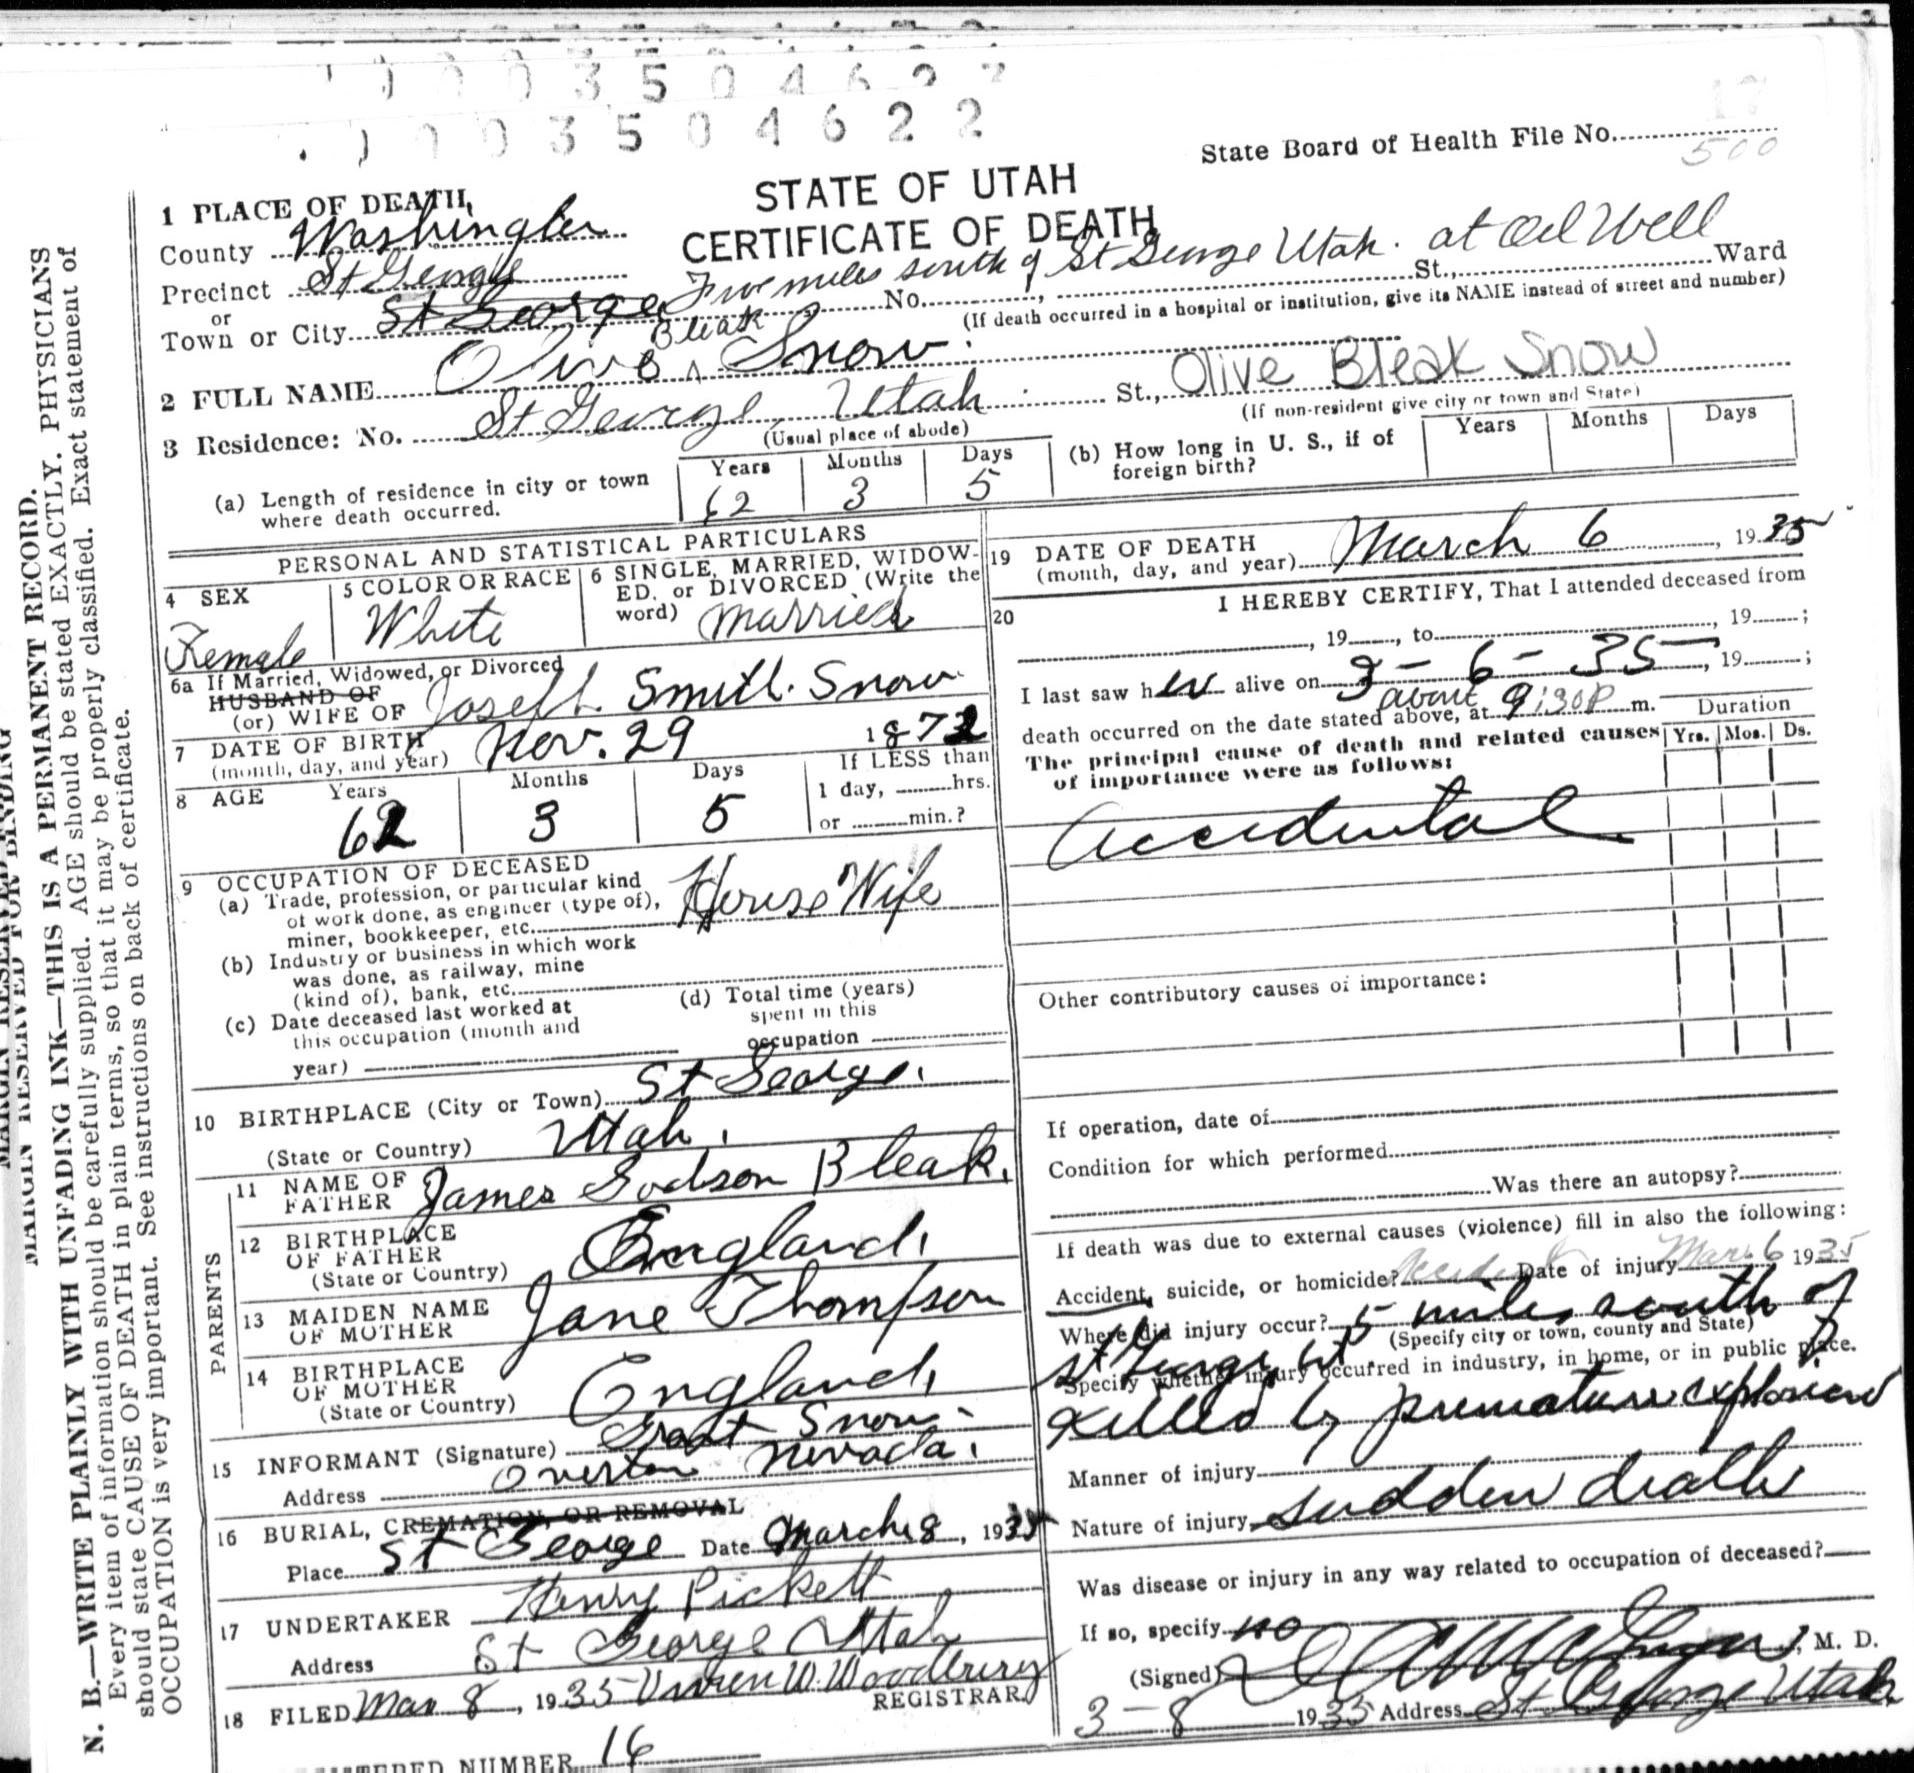 1003504622
State Board of Health File No.
500
STATE OF UTAH
CERTIFICATE OF DEATH
1 PLACE OF DEATH
County Washington
Precinct St George
or
Town or City St George Five miles south of St George Utah. at Oil Well
No. St., Ward
(If death occurred in a hospital or institution, give its NAME instead of street and number)
2 FULL NAME Olive Bleak Snow. Olive Bleak Snow
3 Residence: No. St George, Utah St.,
(Usual place of abode) (If non-resident give city or town and State)
(a) Length of residence in city or town where death occurred. Years 62 Months 3 Days 5
(b) How long in U. S., if of foreign birth? Years Months Days
PERSONAL AND STATISTICAL PARTICULARS
4 SEX Female
5 COLOR OR RACE White
6 SINGLE, MARRIED, WIDOWED, or DIVORCED (Write the word) Married
6a If Married, Widowed, or Divorced
HUSBAND OF
(or) WIFE OF Joseph Smith Snow
7 DATE OF BIRTH (month, day, and year) Nov. 29 1872
8 AGE Years 62 Months 3 Days 5 If LESS than 1 day, hrs. or min.?
9 OCCUPATION OF DECEASED
(a) Trade, profession, or particular kind of work done, as engineer (type of), miner, bookkeeper, etc. House Wife
(b) Industry or business in which work was done, as railway, mine (kind of), bank, etc.
(c) Date deceased last worked at this occupation (month and year)
(d) Total time (years) spent in this occupation
10 BIRTHPLACE (City or Town) St George.
(State or Country) Utah.
PARENTS
11 NAME OF FATHER James Godson Bleak.
12 BIRTHPLACE OF FATHER (State or Country) England.
13 MAIDEN NAME OF MOTHER Jane Thompson
14 BIRTHPLACE OF MOTHER (State or Country) England.
15 INFORMANT (Signature) Grant Snow
Address Overton Nevada.
16 BURIAL, CREMATION, OR REMOVAL
Place St George Date March 8, 1935
17 UNDERTAKER Henry Pickett
Address St George Utah
18 FILED Mar 8, 1935 Vivien W. Woodbury
REGISTRAR
NUMBER 16
19 DATE OF DEATH (month, day, and year) March 6, 1935
20 I HEREBY CERTIFY, That I attended deceased from
, 19 , to , 19 ;
I last saw her alive on 3-6-35, 19 ;
death occurred on the date stated above, at about 9:30P m.
The principal cause of death and related causes of importance were as follows:
Duration
Yrs. Mos. Ds.
Accidental
Other contributory causes of importance:
If operation, date of
Condition for which performed
Was there an autopsy?
If death was due to external causes (violence) fill in also the following:
Accident, suicide, or homicide? Accident Date of injury Mar. 6 1935
Where did injury occur? 5 miles south of
(Specify city or town, county and State)
St George Ut
Specify whether injury occurred in industry, in home, or in public place.
Killed by premature explosion
Manner of injury
Nature of injury sudden death
Was disease or injury in any way related to occupation of deceased?
If so, specify no
(Signed) M. D.
3-8 1935 Address St George Utah
MARGIN RESERVED FOR BINDING
N. B.—WRITE PLAINLY WITH UNFADING INK—THIS IS A PERMANENT RECORD.
Every item of information should be carefully supplied. AGE should be stated EXACTLY. PHYSICIANS
should state CAUSE OF DEATH in plain terms, so that it may be properly classified. Exact statement of
OCCUPATION is very important. See instructions on back of certificate.